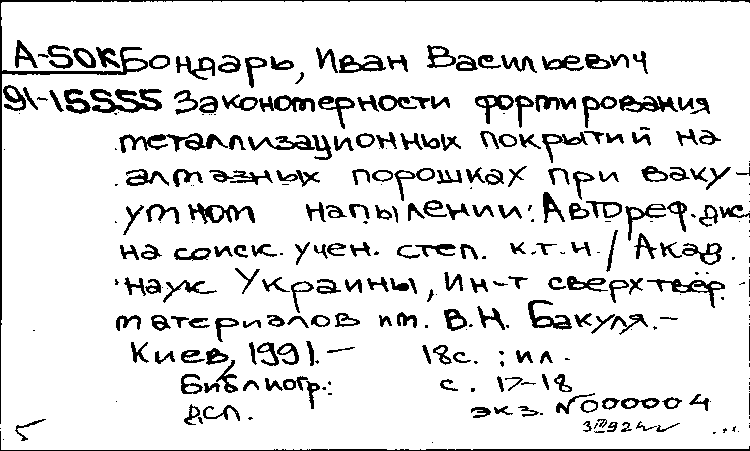 А-50К Бондарь, Иван Васильевич
91-15555 Закономерности формирования
металлизационных покрытий на
алмазных порошках при ваку-
умном напылении: Автореф. дис.
на соиск. учен. степ. к.т.н. / Акад.
наук Украины, Ин-т сверхтвёр.
материалов им. В.Н. Бакуля. –
Киев, 1991. – 18с. ; ил.
Библиогр.: с. 17-18
ДСП. экз. N000004
5